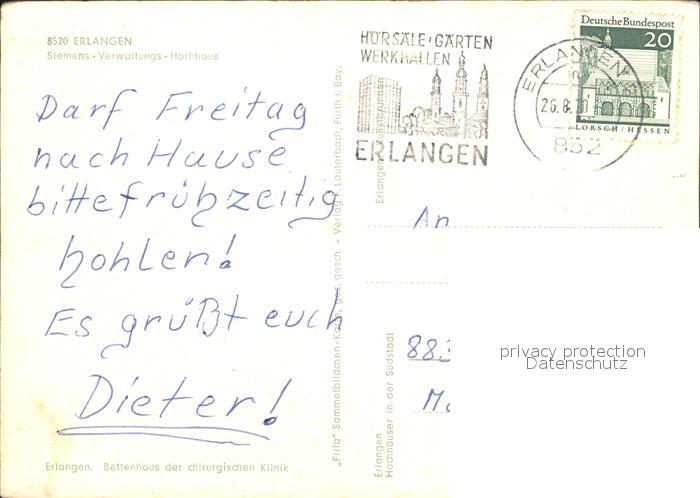 8520 ERLANGEN
Siemens - Verwaltungs - Hochhaus
Darf Freitag
nach Hause
bitte frühzeitig
hohlen!
Es grüßt euch
Dieter!
Erlangen. Bettenhaus der chirurgischen Klinik
„Frila" Sammelbildchen-Karte, ges. gesch. - Verlag F. Lauterbach, Fürth i. Bay.
HÖRSÄLE · GÄRTEN
WERKHALLEN
ERLANGEN
Deutsche Bundespost
20
LORSCH / HESSEN
ERLANGEN
26.8.70
852
Erlangen
Erlangen
Hochhäuser in der Südstadt
An
883
privacy protection
Datenschutz